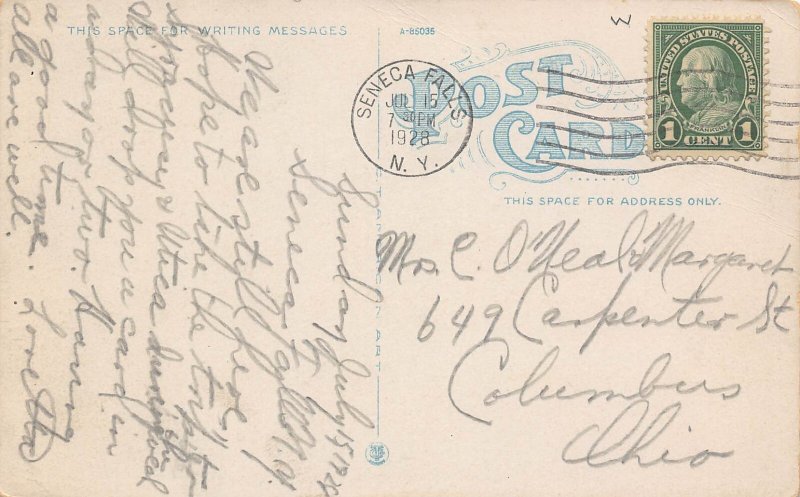 THIS SPACE FOR WRITING MESSAGES
A-85035
W
POST
CARD
SENECA FALLS
JUL 15
7 30 PM
1928
N. Y.
UNITED STATES POSTAGE
FRANKLIN
1 CENT 1
THIS SPACE FOR ADDRESS ONLY.
Mrs. C. O'Neal & Margaret
649 Carpenter St
Columbus
Ohio
Sunday July 15 1928
Seneca Falls N.Y.
We are still here
hope to take the trip to
Syracuse & Utica
Will drop you a card in
a day or two. Having
a good time. Love
all are well.